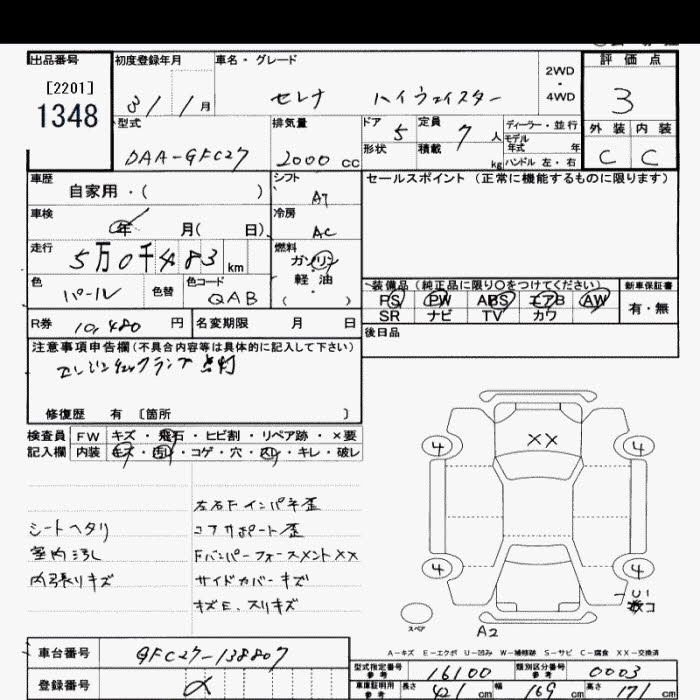 出品番号 初度登録年月 車名・グレード 評価点
[2201]
1348
31 / 1月 セレナ ハイウェイスター 2WD・4WD 3
型式 排気量 ドア 5 定員 7人 ディーラー・並行 外装 内装
DAA-GFC27 2000cc 形状 積載 kg モデル年式 年 ハンドル 左・右 C C
車歴 シフト セールスポイント(正常に機能するものに限ります)
自家用・( ) AT
車検 冷房
年 月( 日) AC
走行 燃料
5万0千483km ガソリン
軽・油
色 色替 色コード ( ) 装備品(純正品に限り○をつけてください) 新車保証書
パール QAB PS PW ABS エアB AW 有・無
SR ナビ TV カワ
R券 10,480円 名変期限 月 日 後日品
注意事項申告欄(不具合内容等は具体的に記入して下さい)
エンジンチェックランプ点灯
修復歴 有 〔箇所 〕
検査員 FW キズ・飛石・ヒビ割・リペア跡・×要
記入欄 内装 キズ・汚れ・コゲ・穴・スレ・キレ・破レ
XX
4 4
左右Fインパネ歪
シートヘタリ コアサポート歪
室内汚れ FバンパーフォースメントXX
内張りキズ サイドカバーキズ
キズE、スリキズ
4 4
U1
スペア A2
A-キズ E-エクボ U-凹み W-補修跡 S-サビ C-腐食 XX-交換済
車台番号 GFC27-138807
型式指定番号 参考 16100 類別区分番号 参考 0003
登録番号 車庫証明用 参考 長さ 421cm 幅 169cm 高さ 171cm